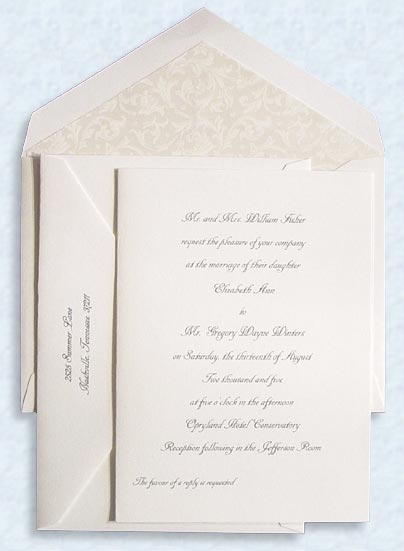 Mr. and Mrs. William Fisher
request the pleasure of your company
at the marriage of their daughter
Elizabeth Ann
to
Mr. Gregory Wayne Winters
on Saturday, the thirteenth of August
Two thousand and five
at five o'clock in the afternoon
Opryland Hotel Conservatory
Reception following in the Jefferson Room
The favour of a reply is requested
2525 Summer Lane
Nashville, Tennessee 37211